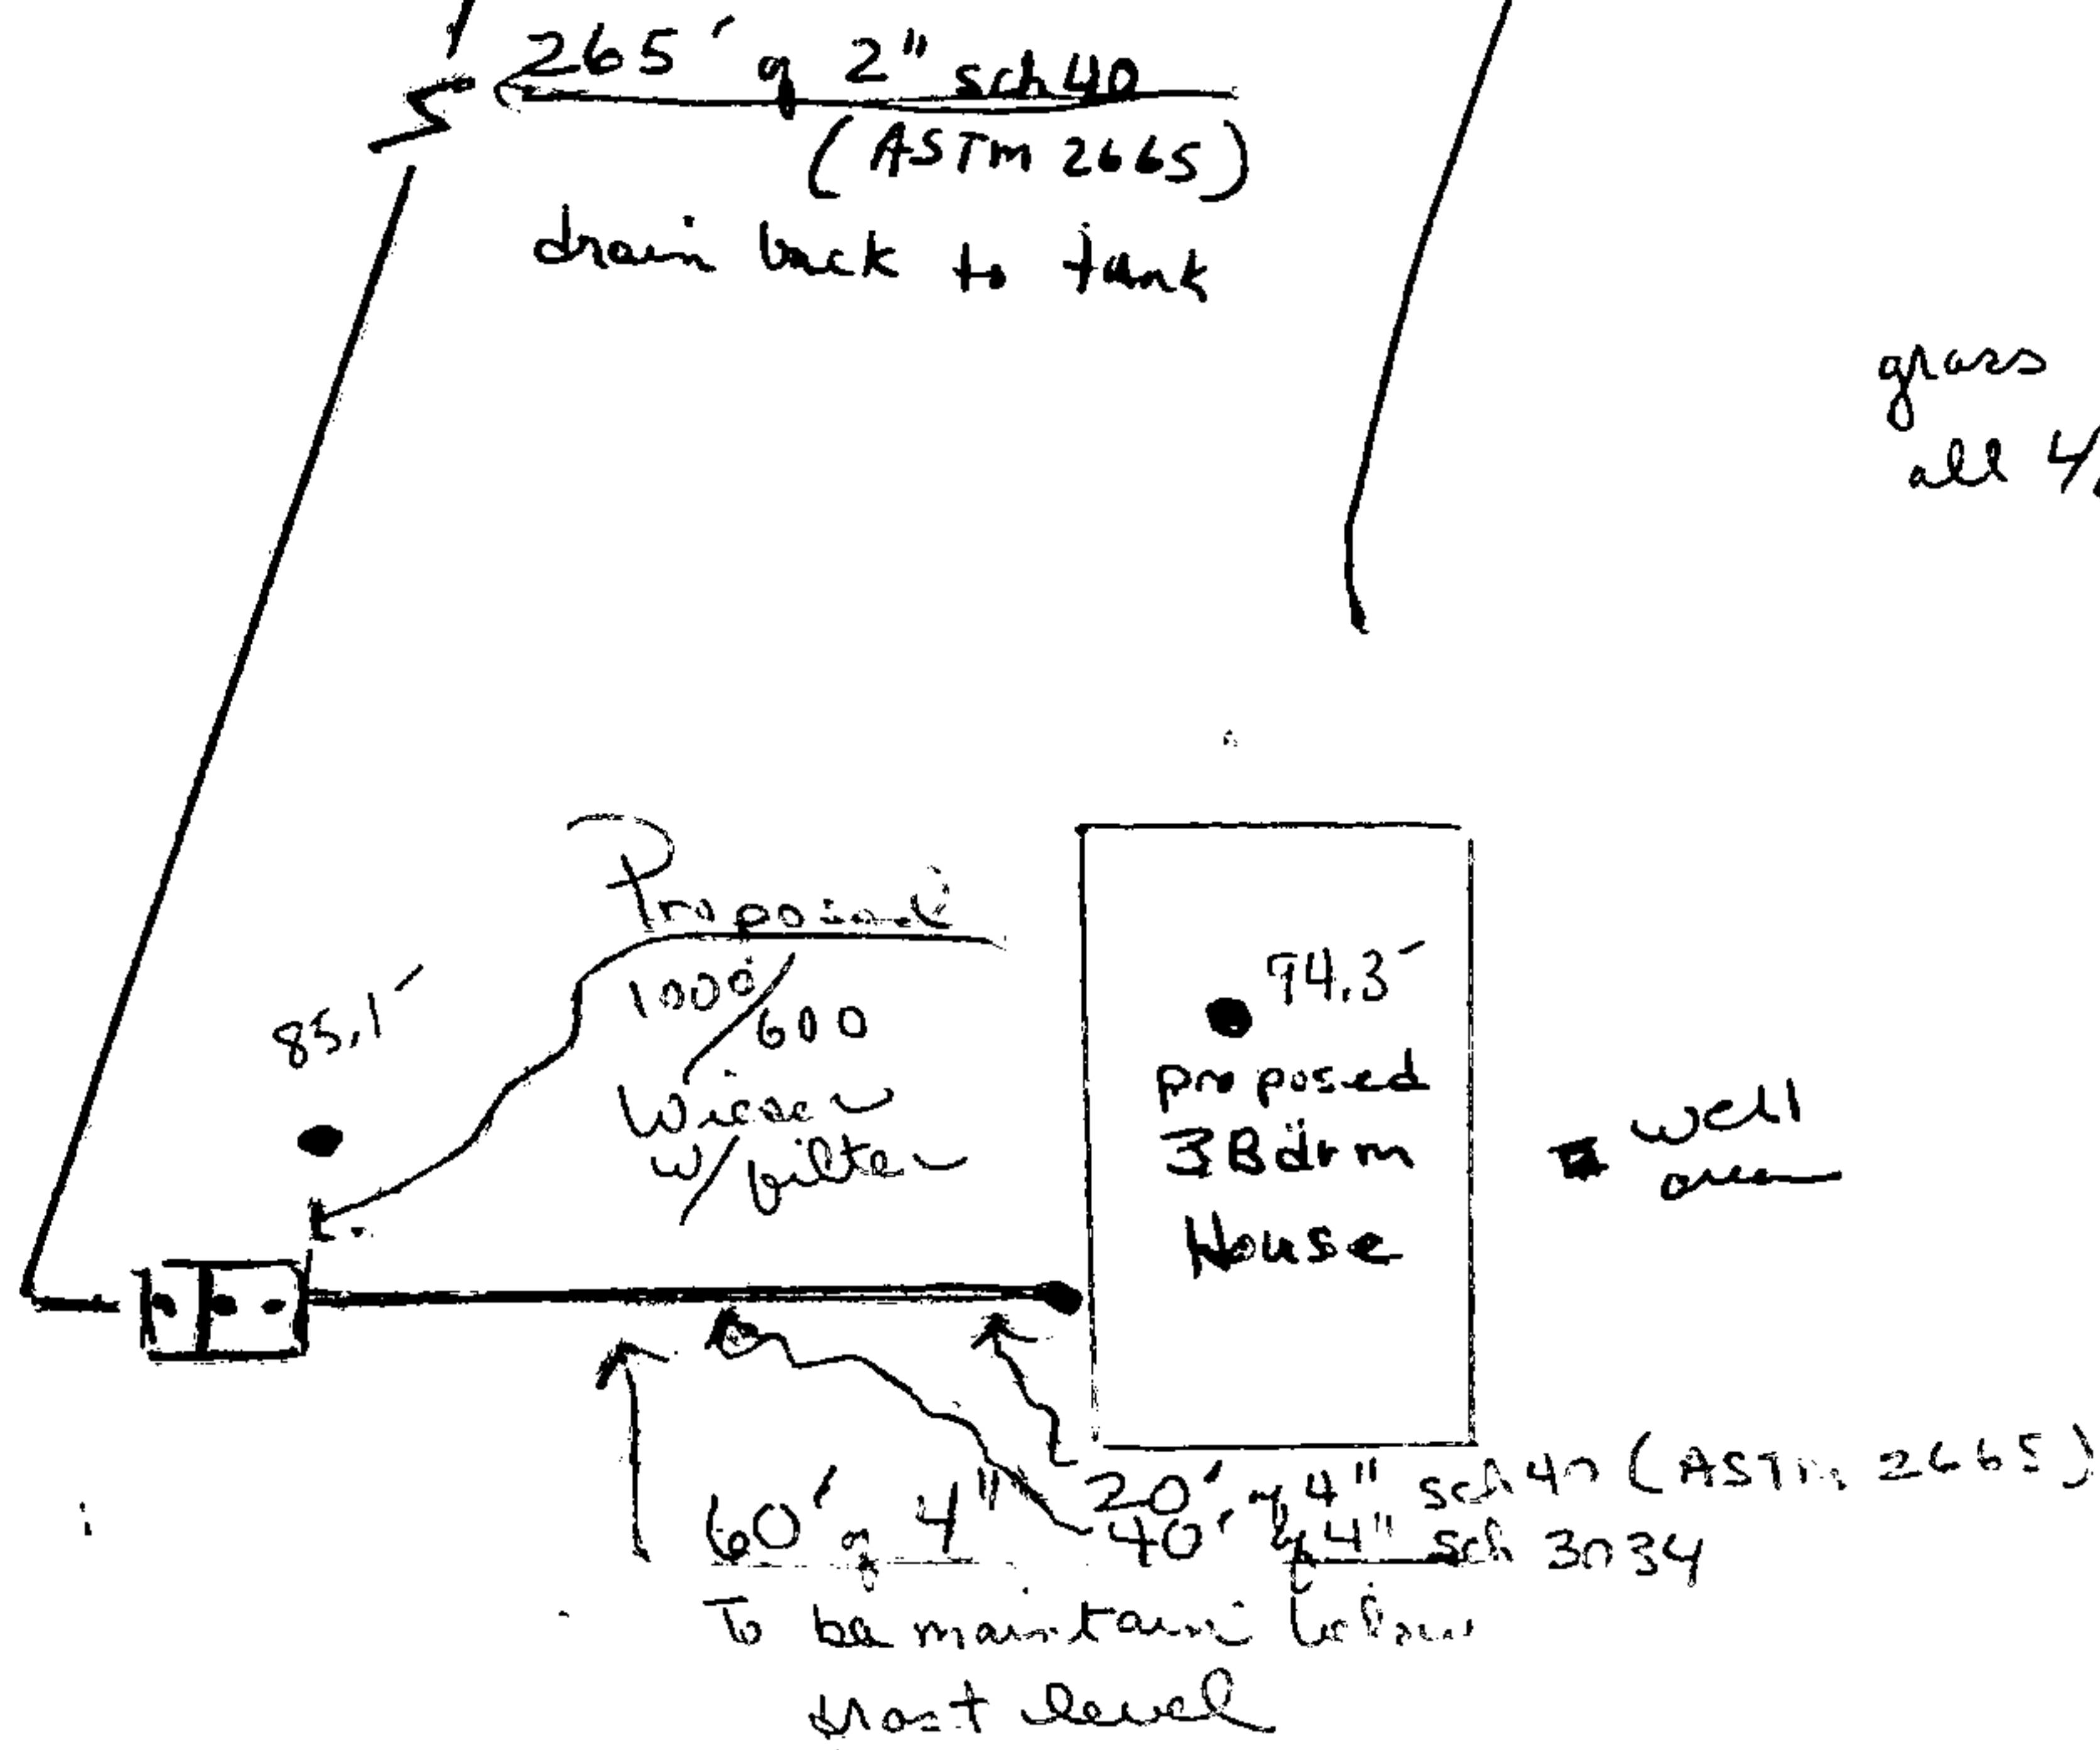 265' of 2" sch 40
(ASTM 2665)
drain back to tank
grass
all 4/
Proposed
1000/600
Wieser
w/ filter
85.1'
94.3'
proposed
3 Bdrm
House
well
area
20' of 4" sch 40 (ASTM 2665)
60' of 4"
40' of 4" sch 3034
To be maintain below
frost level